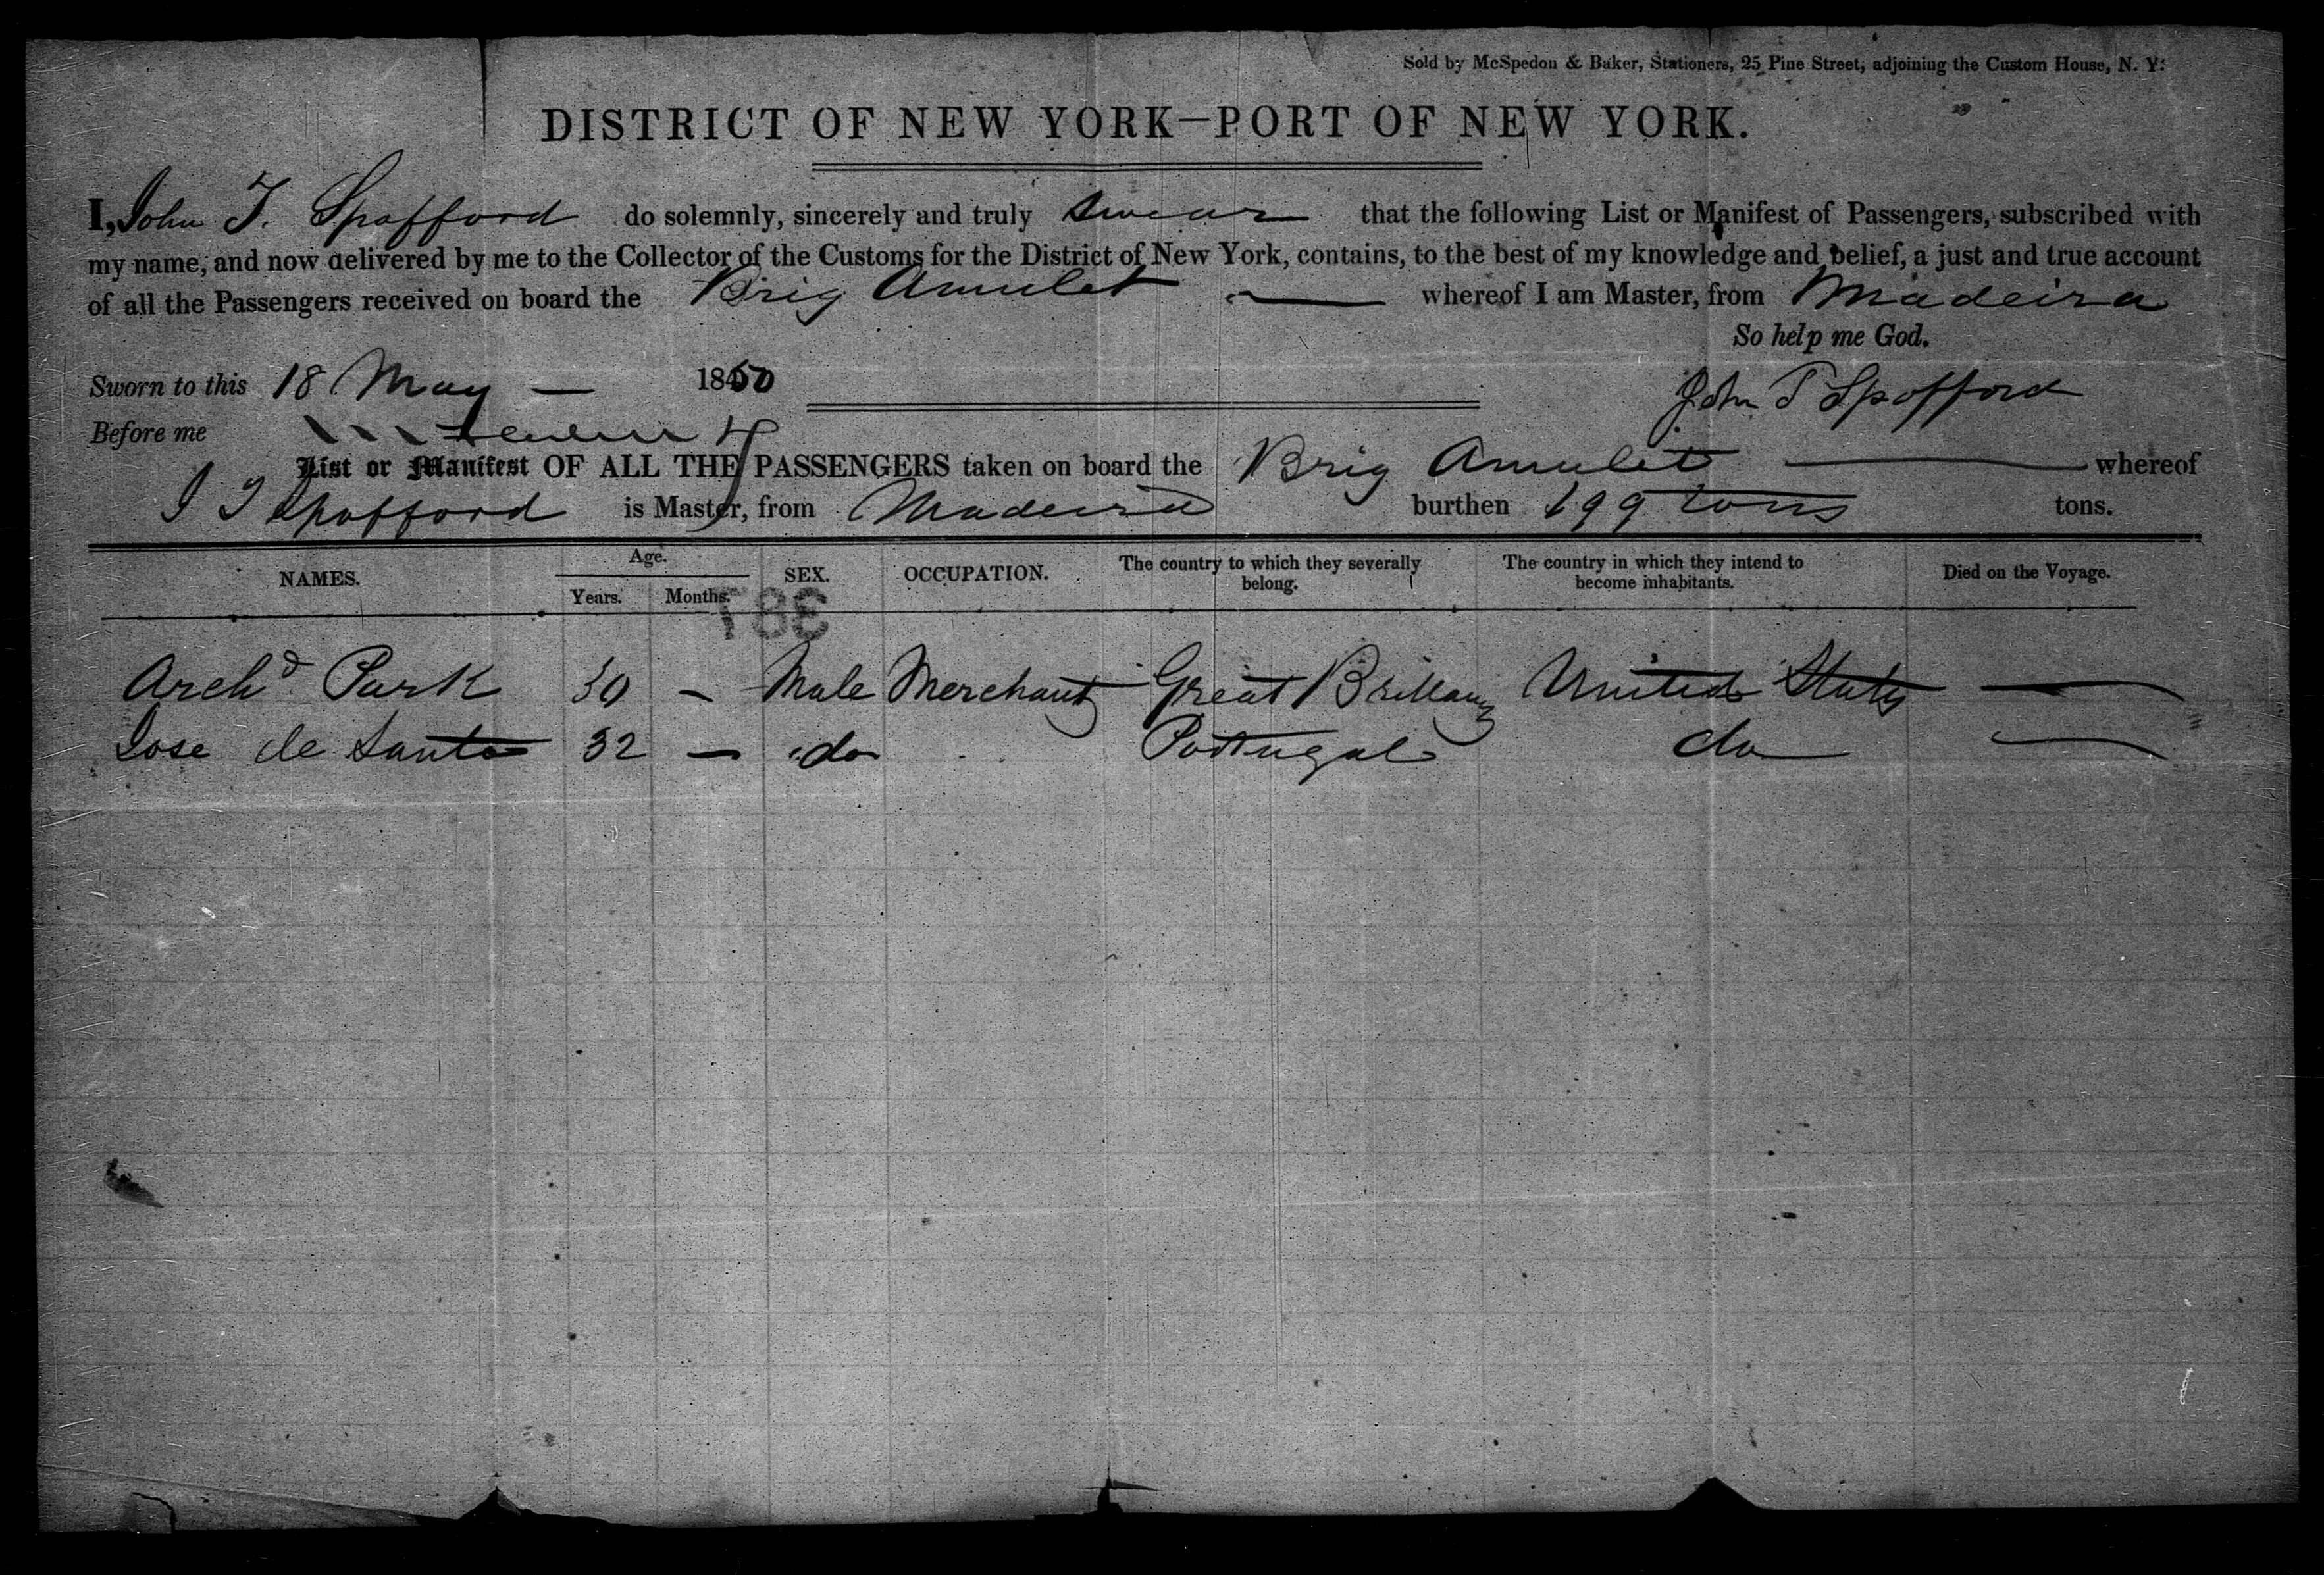 Sold by McSpedon & Baker, Stationers, 25 Pine Street, adjoining the Custom House, N. Y.
DISTRICT OF NEW YORK—PORT OF NEW YORK.
I, John T. Spofford do solemnly, sincerely and truly swear that the following List or Manifest of Passengers, subscribed with
my name, and now delivered by me to the Collector of the Customs for the District of New York, contains, to the best of my knowledge and belief, a just and true account
of all the Passengers received on board the Brig Amulet — whereof I am Master, from Madeira
So help me God.
Sworn to this 18 May — 1850
John T Spofford
Before me
List or Manifest OF ALL THE PASSENGERS taken on board the Brig Amulet — whereof
J T Spofford is Master, from Madeira burthen 199 tons tons.
NAMES. Age. Years. Months. SEX. OCCUPATION. The country to which they severally belong. The country in which they intend to become inhabitants. Died on the Voyage.
381
Archd. Park 30 — Male Merchant Great Brittany United States —
Jose de Santos 32 — do Portugal do —